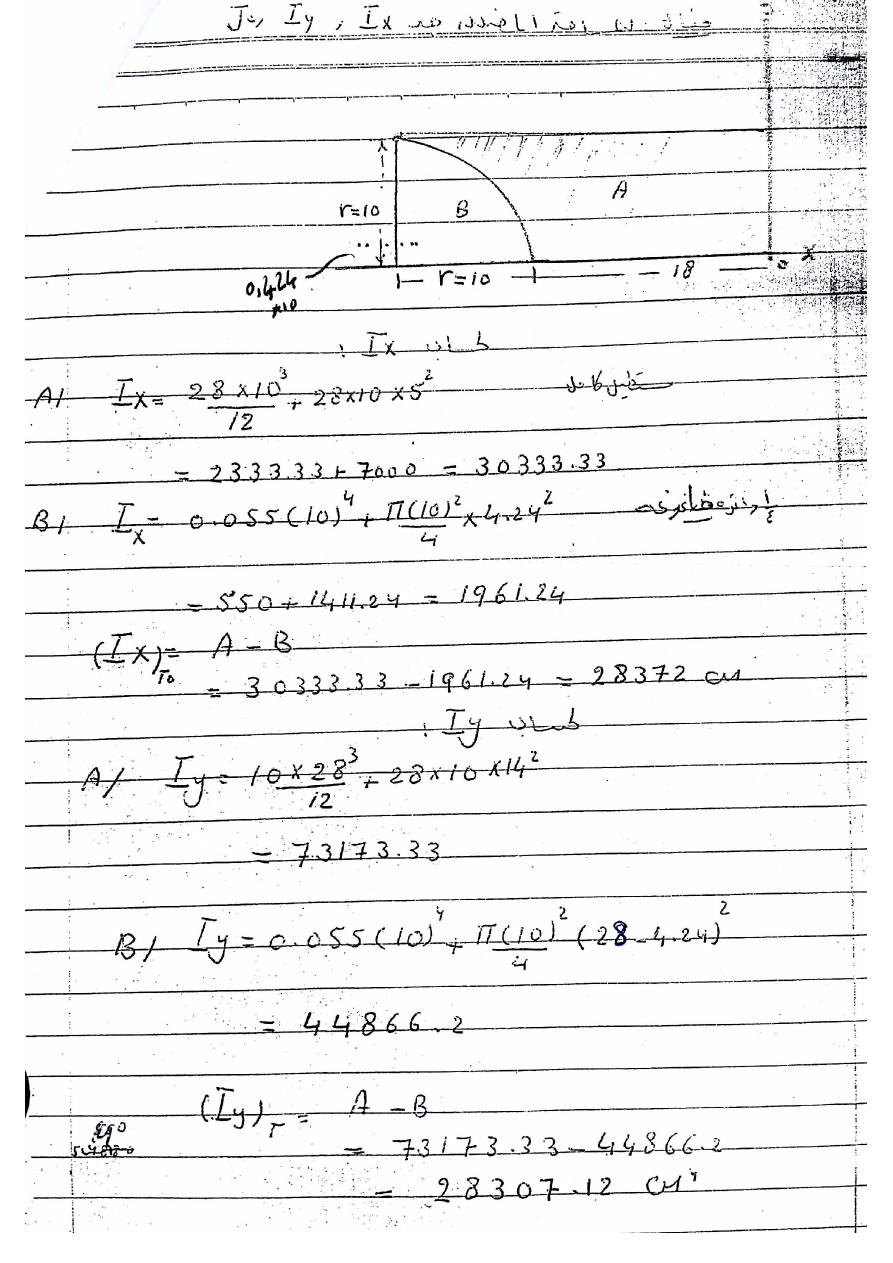 Ix , Iy
A
B
r=10
0.424
×10
r=10
18
o
x
حساب Ix :
A/ Ix = 28×10³/12 + 28×10×5²
= 2333.33 + 7000 = 30333.33
B/ Ix = 0.055(10)⁴ + π(10)²/4 × 4.24²
= 550 + 1411.24 = 1961.24
(Ix)To = A - B
= 30333.33 - 1961.24 = 28372 cm
حساب Iy :
A/ Iy = 10×28³/12 + 28×10×14²
= 73173.33
B/ Iy = 0.055(10)⁴ + π(10)²/4 (28-4.24)²
= 44866.2
(Iy)T = A - B
= 73173.33 - 44866.2
= 28307.12 cm⁴